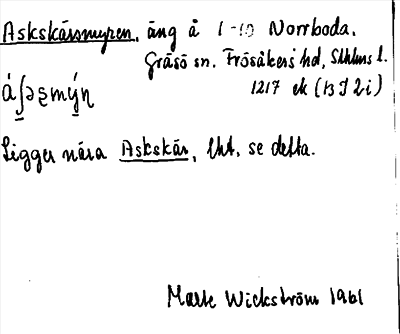 Askskärsmyren, äng å 1-10 Norrboda,
Gräsö sn. Frösåkers hd, Sthlms l.
1217 ek (13I 2i)
Ligger nära Askskär, , se detta.
Märte Wickström 1961